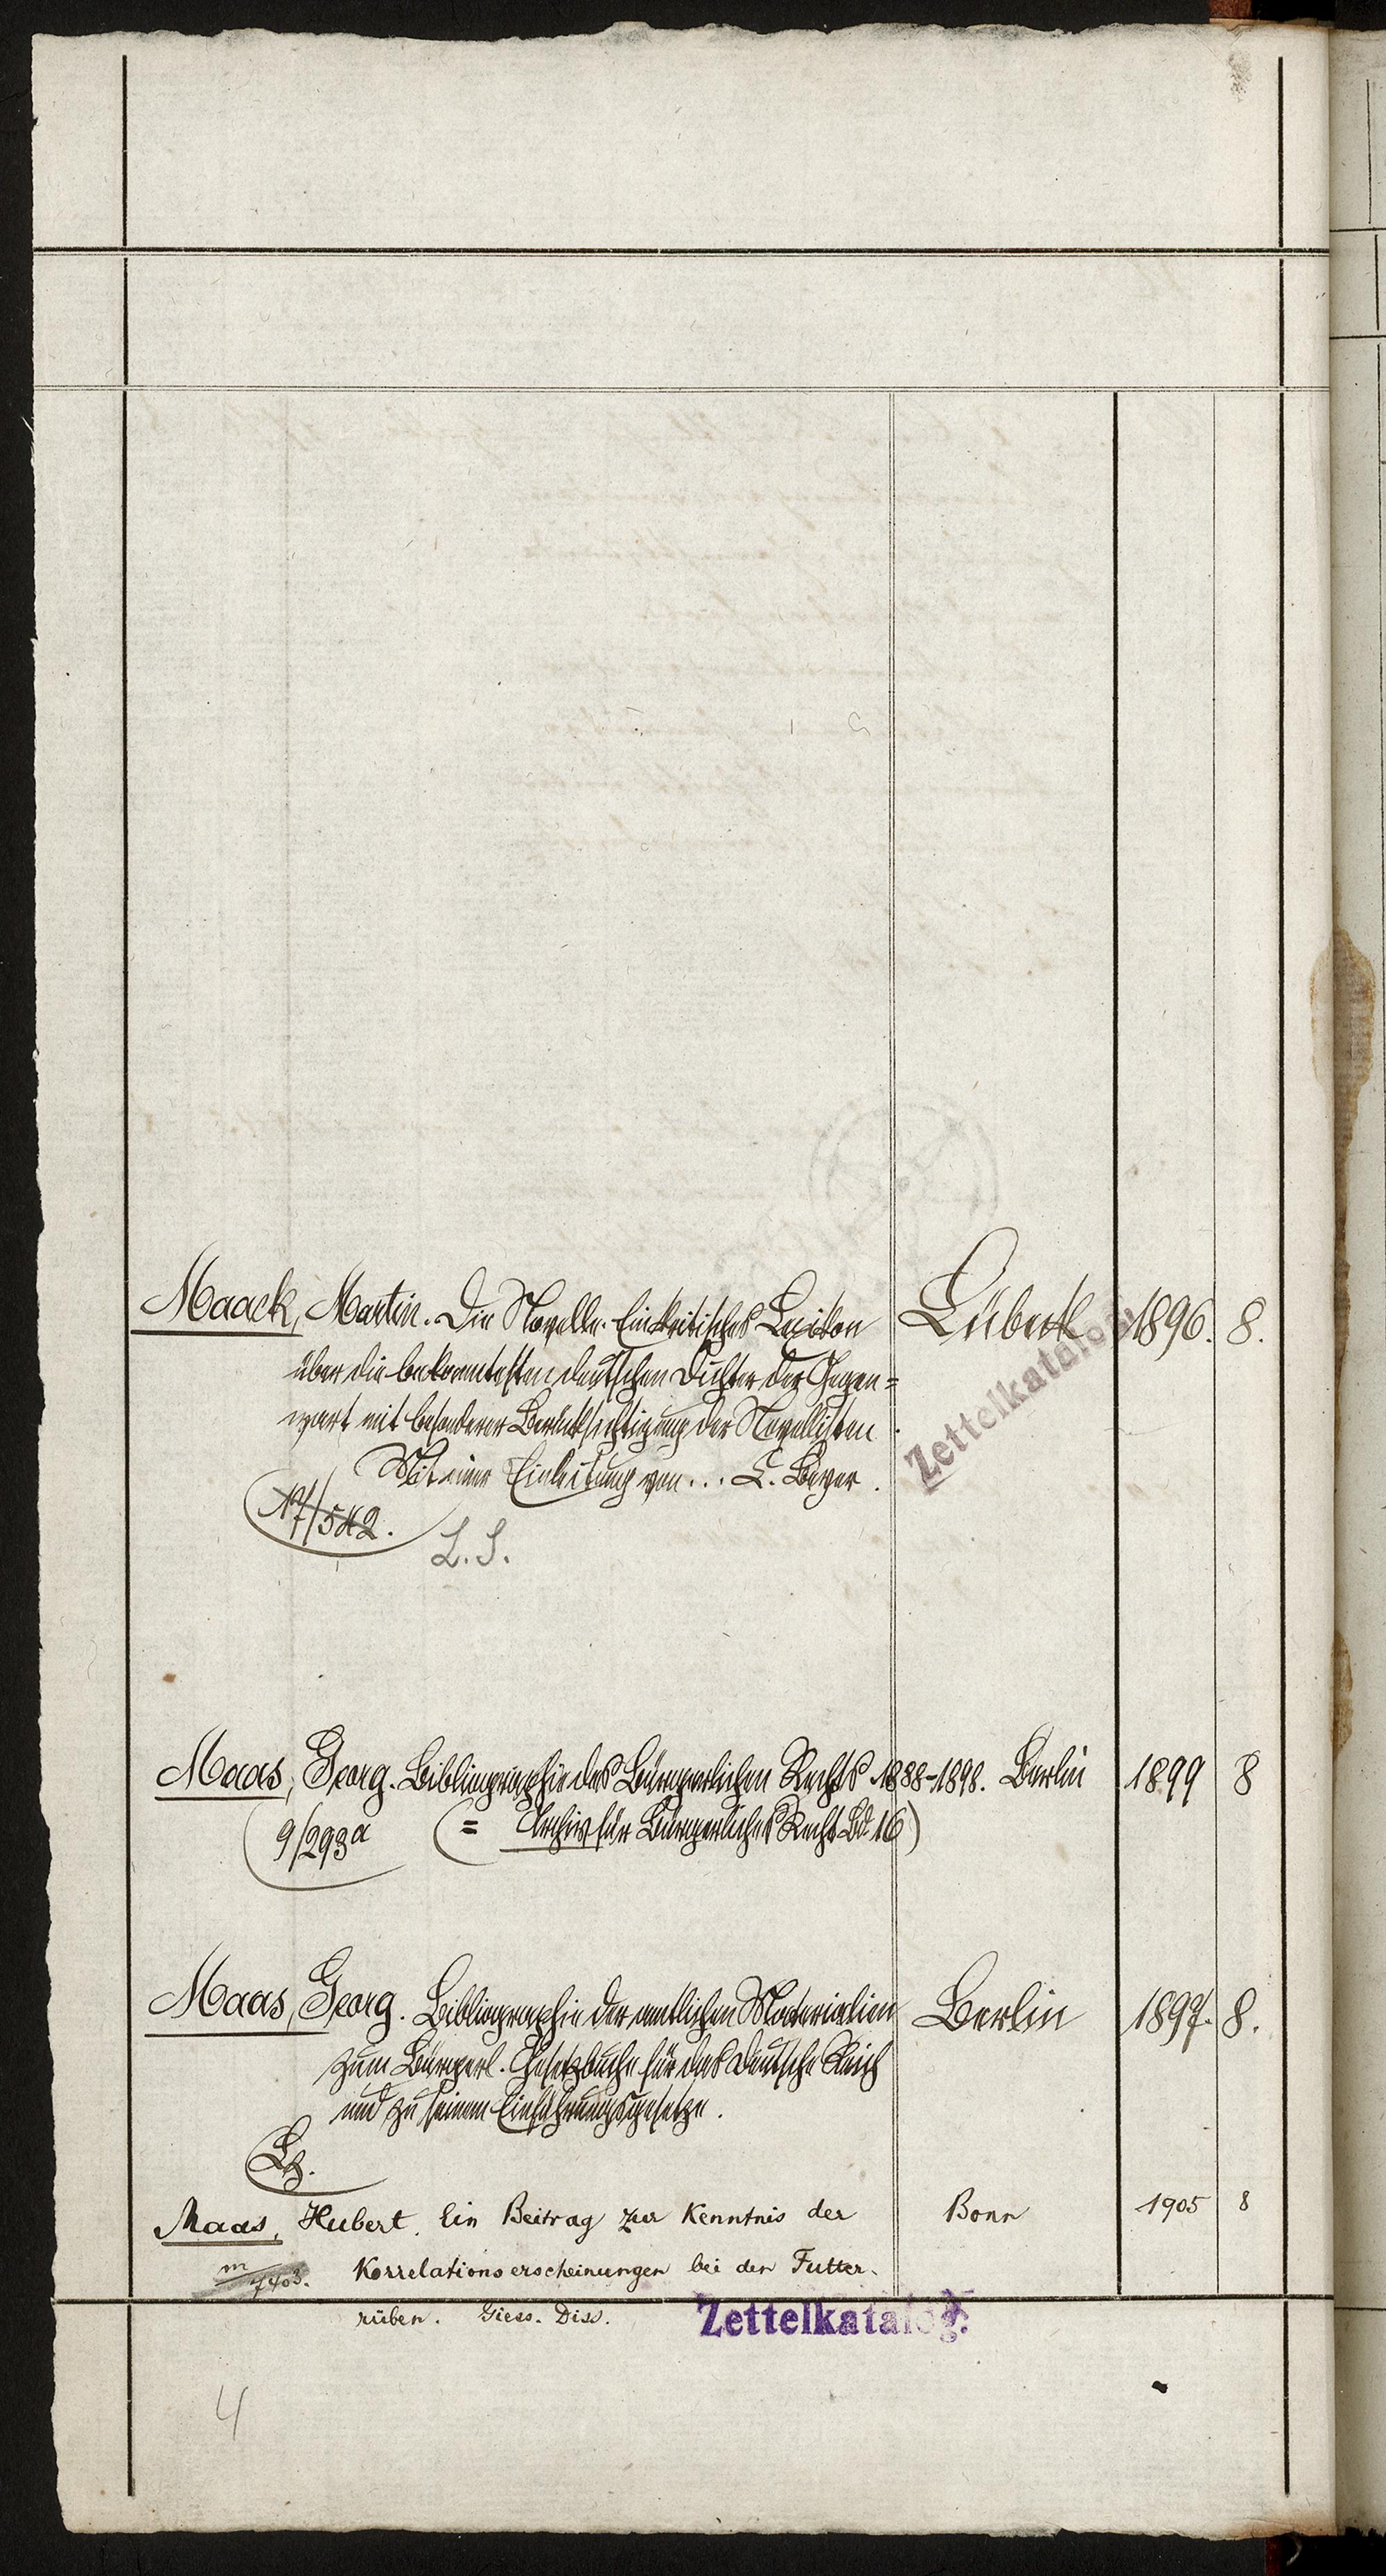 Maack, Martin. Die Novelle. Ein kritisches Lexikon Lübeck 1896. 8.
über die bekanntesten deutschen Dichter der Gegen=
wart mit besonderer Berücksichtigung der Novellisten.
Mit einer Einleitung von... C. Beyer.
Zettelkatalog
L. S.
Maas, Georg. Bibliographie des Bürgerlichen Rechts 1888-1898. Berlin 1899 8
9/293a (= Archiv für Bürgerliches Recht Bd. 16)
Maas, Georg. Bibliographie der amtlichen Materialien Berlin 1897. 8.
zum Bürgerl. Gesetzbuche für das deutsche Reich
und zu seinem Einführungsgesetze.
Maas, Hubert. Ein Beitrag zur Kenntnis der Bonn 1905 8
Korrelationserscheinungen bei den Futter-
rüben. Giess. Diss. Zettelkatalog.
4